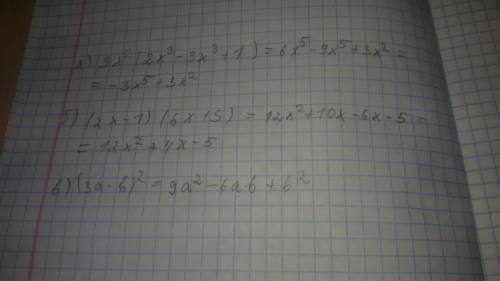 а) 9x²(2x³-3x³+1) = 6x⁵-9x⁵+3x² =
= -3x⁵+3x²
б) (2x-1)(6x+5) = 12x²+10x-6x-5 =
= 12x²+4x-5
в) (3a-b)² = 9a²-6ab+b²